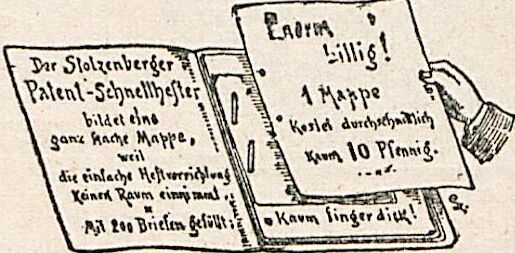 Der Stolzenberger
Patent-Schnellhefter
bildet eine
ganz flache Mappe,
weil
die einfache Heftvorrichtung
keinen Raum einnimmt.
Mit 200 Briefen gefüllt:
Kaum fingerdick!
Enorm
billig!
1 Mappe
kostet durchschnittlich
kaum 10 Pfennig.